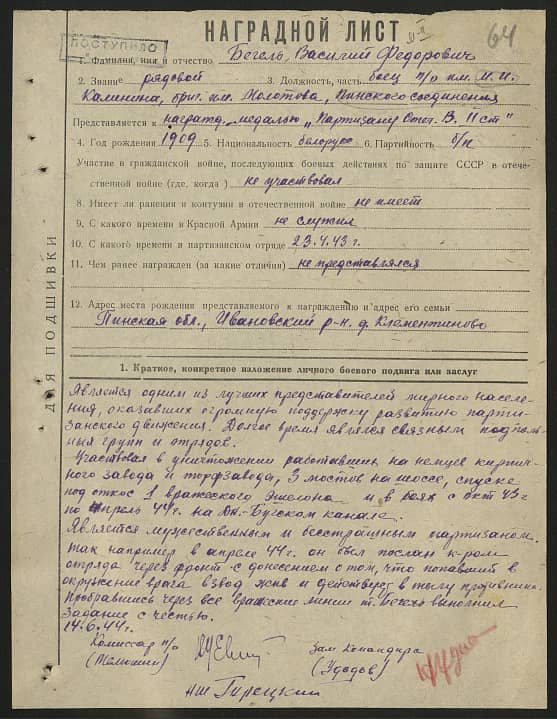 64
НАГРАДНОЙ ЛИСТ
ПОСТУПИЛО
1. Фамилия, имя и отчество Бегель, Василий Федорович
2. Звание рядовой 3. Должность, часть боец п/о им. М.И.
Калинина, бриг. им. Молотова, Пинского соединения
Представляется к наград. медалью „Партизану Отеч. В. II ст"
4. Год рождения 1909 5. Национальность белорус 6. Партийность б/п
Участие в гражданской войне, последующих боевых действиях по защите СССР в отече-
ственной войне (где, когда ) не участвовал
8. Имеет ли ранения и контузии в отечественной войне не имеет
9. С какого времени в Красной Армии не служил
10. С какого времени в партизанском отряде 23.4.43 г.
11. Чем ранее награжден (за какие отличия) не представлялся
12. Адрес места рождения представляемого к награждению и адрес его семьи
Пинская обл., Ивановский р-н. д. Клементиново
ДЛЯ ПОДШИВКИ
1. Краткое, конкретное изложение личного боевого подвига или заслуг
Является одним из лучших представителей мирного населе-
ния, оказавших огромную поддержку развитию парти-
занского движения. Долгое время являлся связным подполь-
ных групп и отрядов.
Участвовал в уничтожении работавших на немцев кирпич-
ного завода и торфзавода, 3 мостов на шоссе, спуске
под откос 1 вражеского эшелона и в боях с окт 43 г
по апрель 44 г. на Дн.-Бугском канале.
Является мужественным и бесстрашным партизаном.
Так например в апреле 44 г. он был послан к-ром
отряда через фронт с донесением о том, что попавший в
окружение врага взвод жив и действует в тылу противника.
Пробравшись через все вражские линии т. Бегель выполнил
задание с честью.
14.6.44 г.
Комиссар п/о Зам командира
(Удодов)
нш Гирецкий